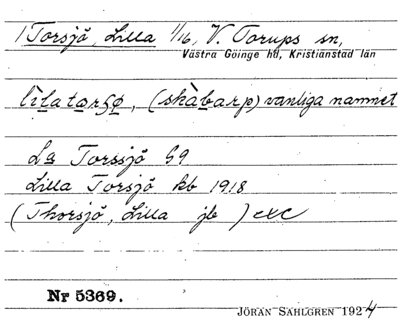 1 Torsjö, Lilla 1/16, V. Torups sn,
Västra Göinge hd, Kristianstad län
lìlatorsø, (skàbarp) vanliga namnet
La Torssjö G9
Lilla Torsjö kb 1918
(Thorsjö, Lilla jb) exc
Nr 5369.
JÖRAN SAHLGREN 1924